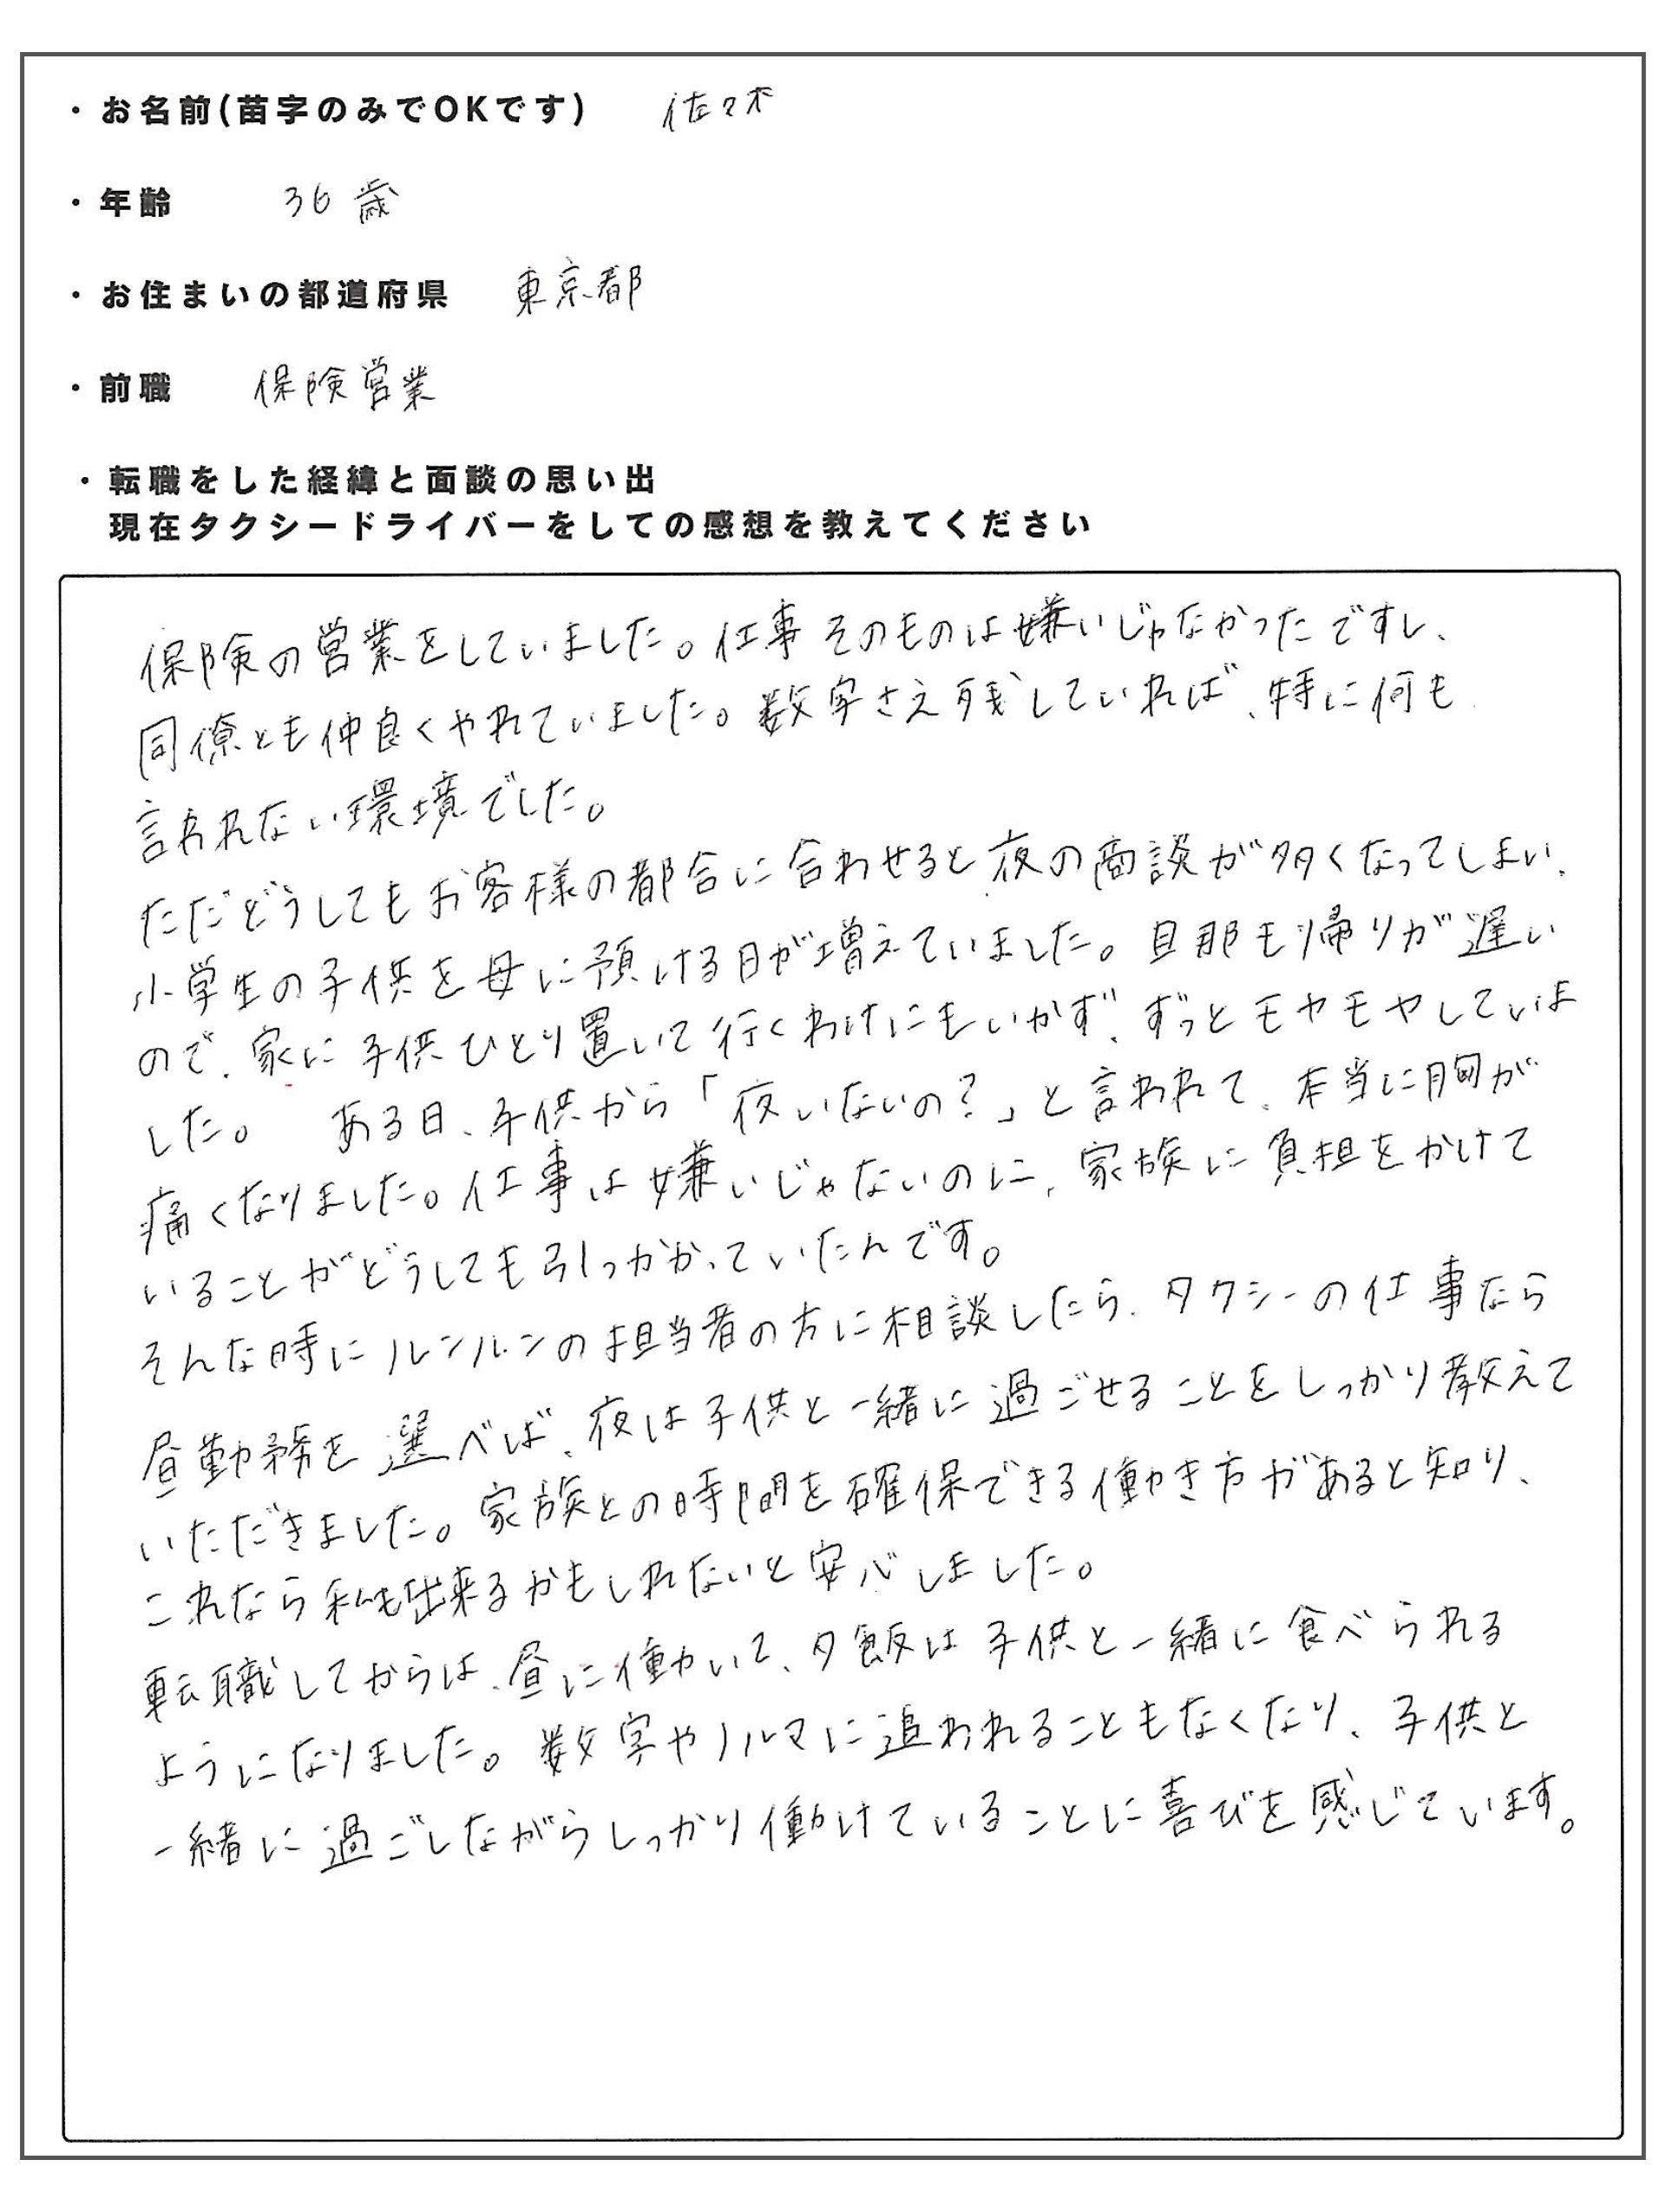 ・お名前(苗字のみでOKです) 佐々木
・年齢 36歳
・お住まいの都道府県 東京都
・前職 保険営業
・転職をした経緯と面談の思い出
現在タクシードライバーをしての感想を教えてください
保険の営業をしていました。仕事そのものは嫌いじゃなかったですし、
同僚とも仲良くやれていました。数字さえ残していれば、特に何も
言われない環境でした。
ただどうしてもお客様の都合に合わせると夜の商談が多くなってしまい、
小学生の子供を母に預ける日が増えていました。旦那も帰りが遅い
ので、家に子供ひとり置いて行くわけにもいかず、ずっとモヤモヤしていま
した。 ある日、子供から「夜いないの?」と言われて、本当に胸が
痛くなりました。仕事は嫌いじゃないのに、家族に負担をかけて
いることがどうしても引っかかっていたんです。
そんな時にルンルンの担当者の方に相談したら、タクシーの仕事なら
昼勤務を選べば、夜は子供と一緒に過ごせることをしっかり教えて
いただきました。家族との時間を確保できる働き方があると知り、
これなら私も出来るかもしれないと安心しました。
転職してからは、昼に働いて、夕飯は子供と一緒に食べられる
ようになりました。数字やノルマに追われることもなくなり、子供と
一緒に過ごしながらしっかり働けていることに喜びを感じています。